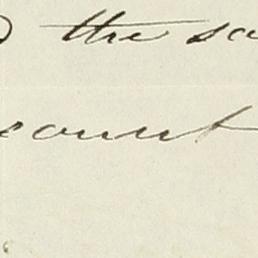 the sa
count